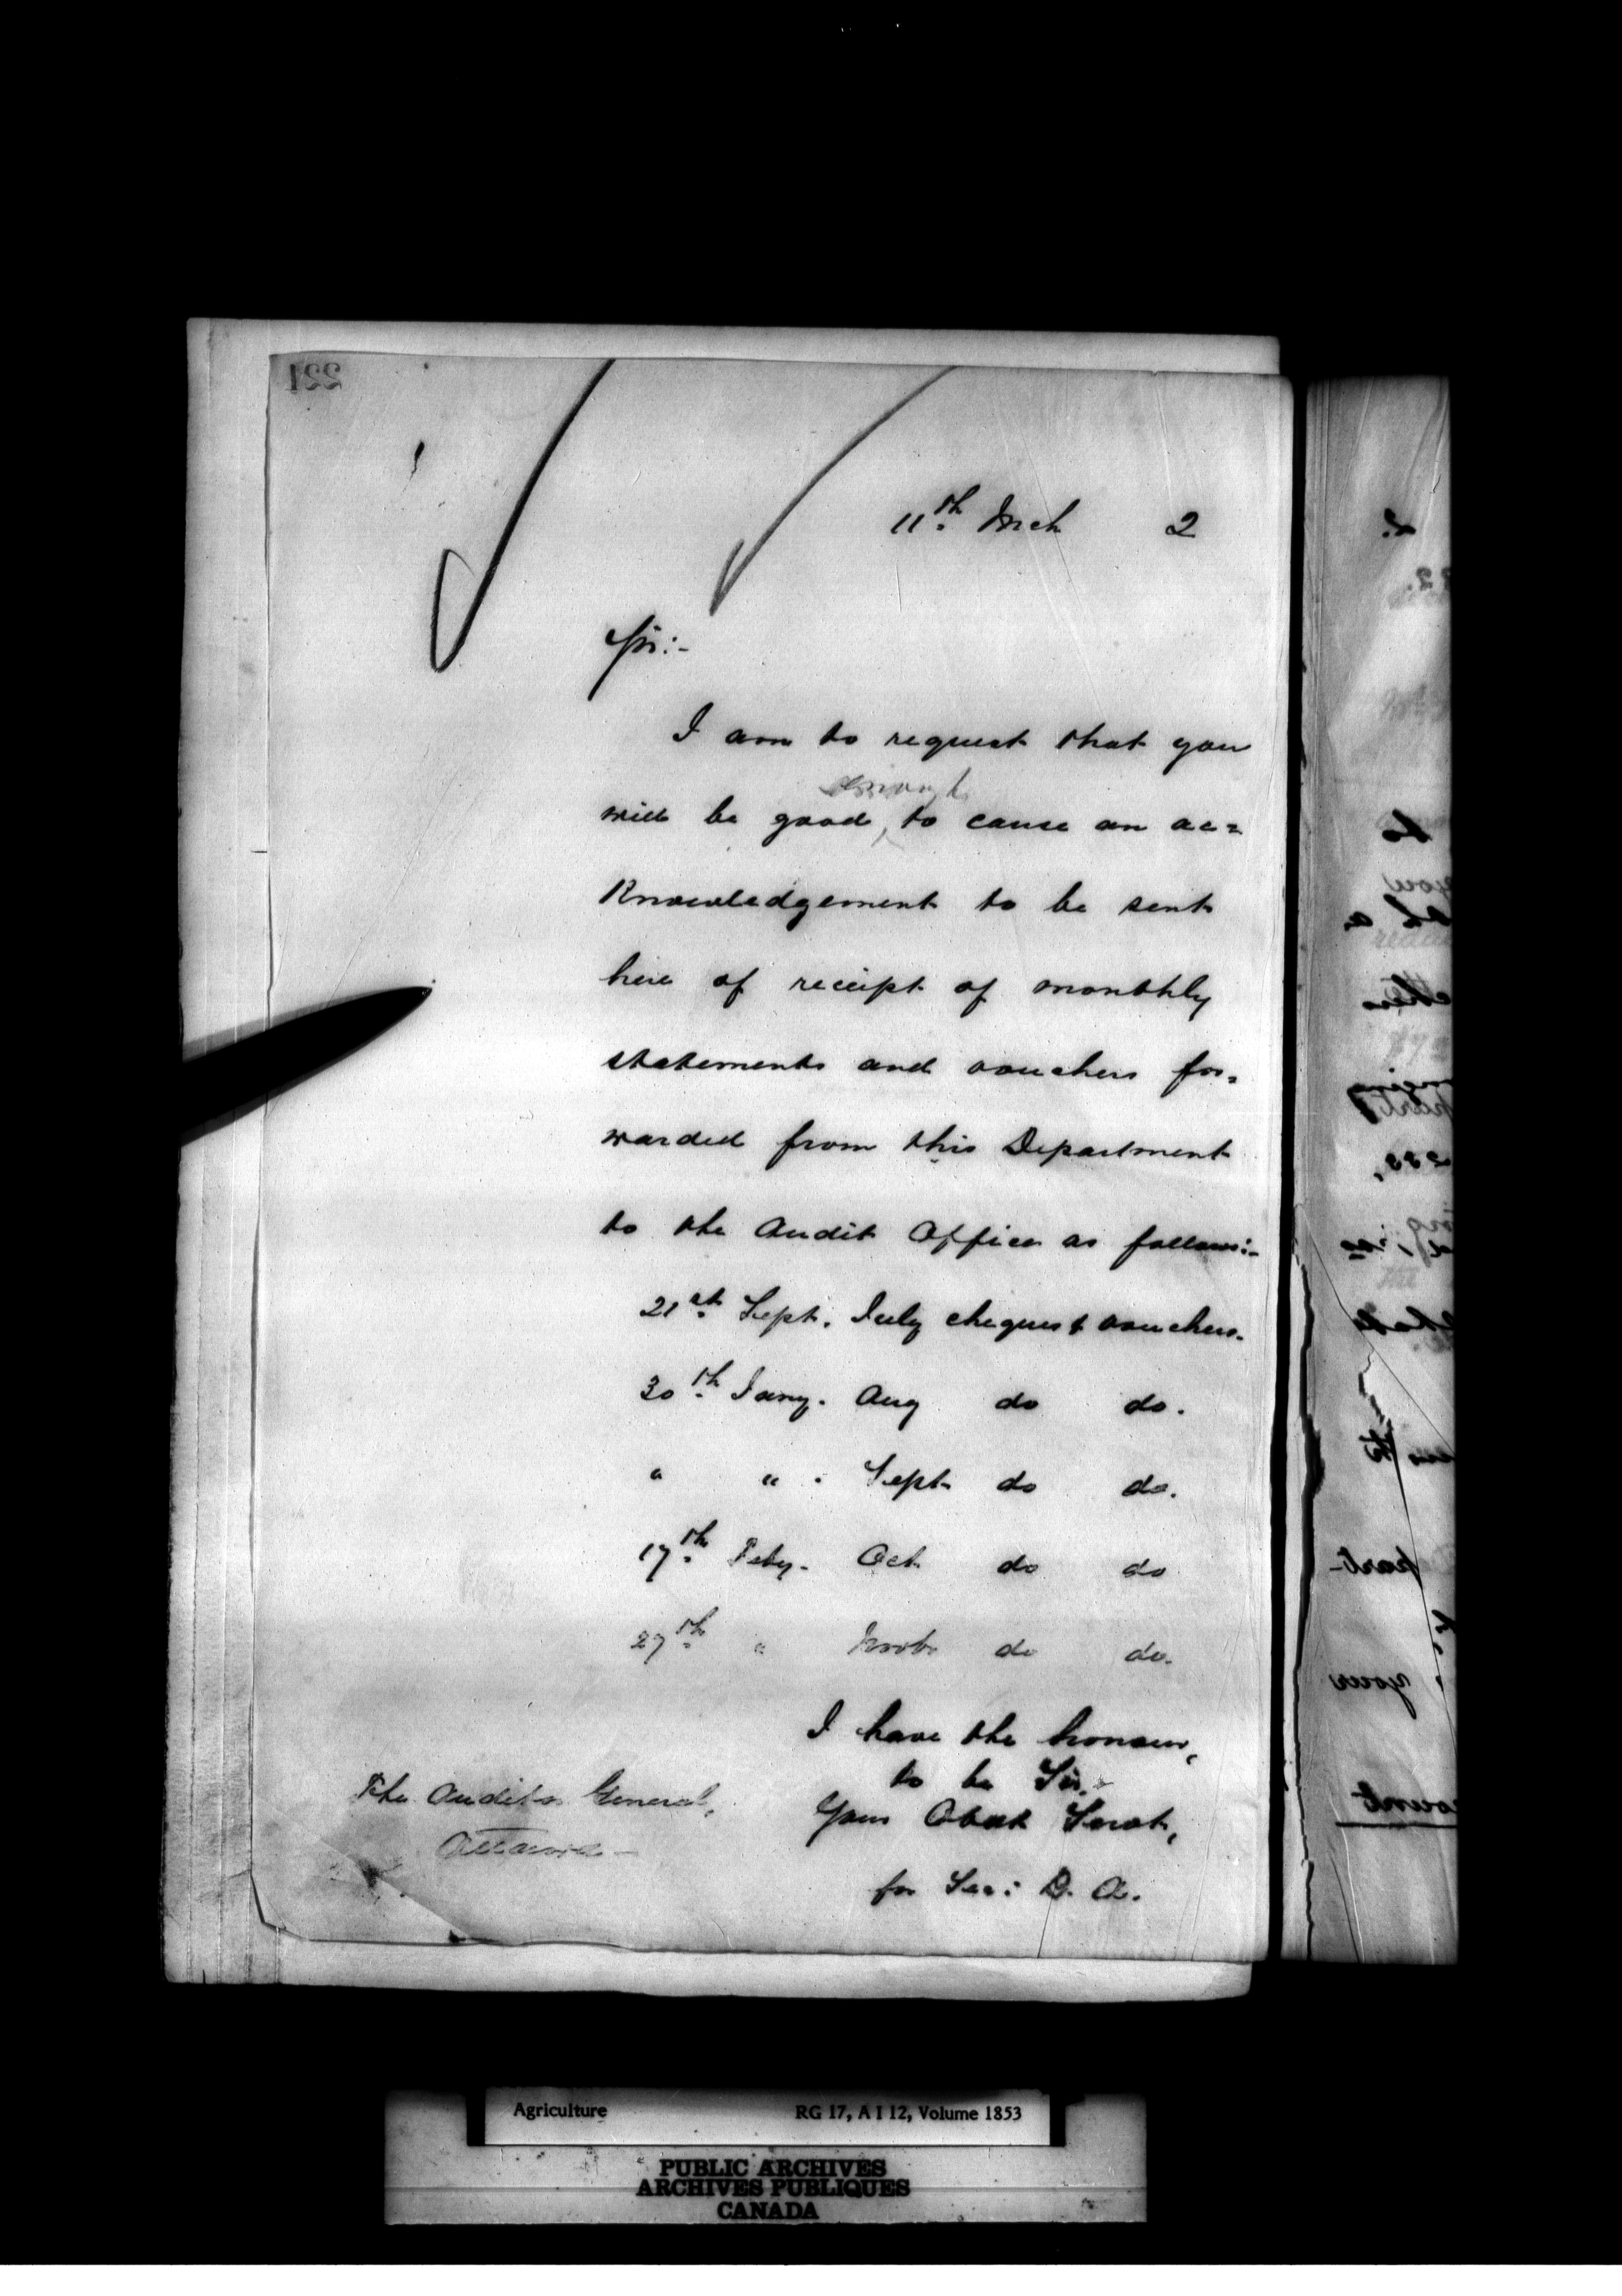 221
11th Mch 2
Sir:-
I am to request that you
enough
will be good, to cause an ac=
knowledgement to be sent
here of receipt of monthly
statements and vouchers for=
warded from this Department
to the Audit Office as follows:-
21st Sept. July cheques & vouchers.
30th Jany. Aug do do.
" " . Sept do do.
17th Feby. Oct do do
27th " Novbr do do.
I have the honour,
to be Sir,
Your Obedt Servt,
for Sec: D. A.
The Auditor General,
Ottawa -
Agriculture RG 17, A I 12, Volume 1853
PUBLIC ARCHIVES
ARCHIVES PUBLIQUES
CANADA